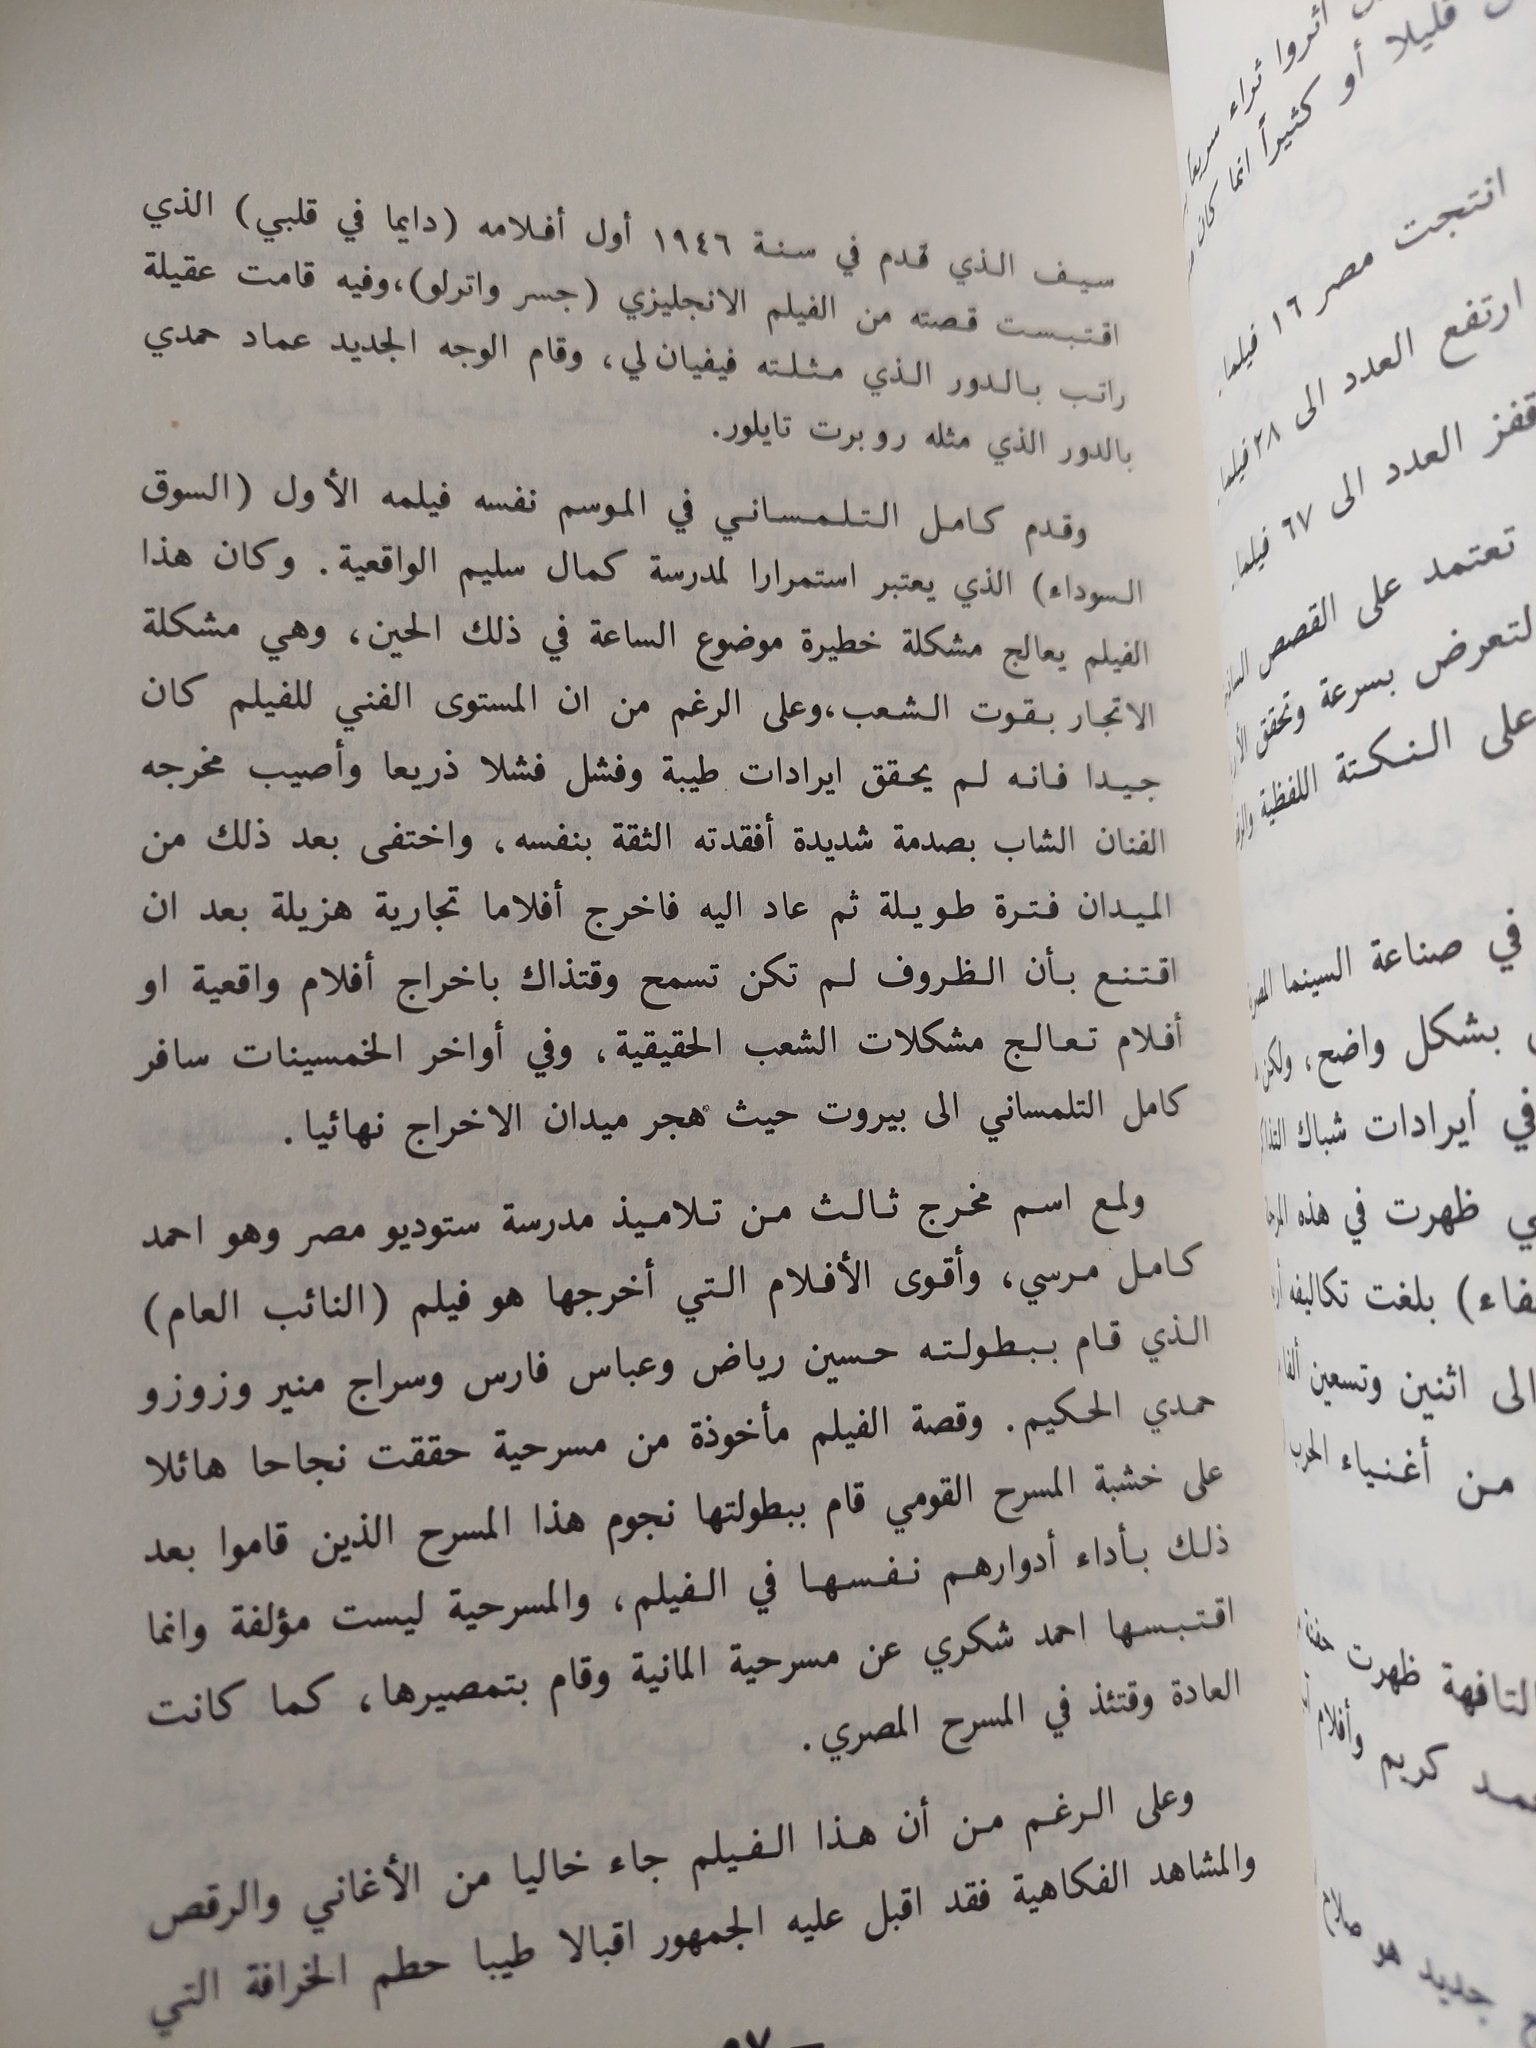 سيف الذي قدم في سنة ١٩٤٦ أول أفلامه (دايما في قلبي) الذي
اقتبست قصته من الفيلم الانجليزي (جسر واترلو)، وفيه قامت عقيلة
راتب بالدور الذي مثلته فيفيان لي، وقام الوجه الجديد عماد حمدي
بالدور الذي مثله روبرت تايلور.
وقدم كامل التلمساني في الموسم نفسه فيلمه الأول (السوق
السوداء) الذي يعتبر استمرارا لمدرسة كمال سليم الواقعية. وكان هذا
الفيلم يعالج مشكلة خطيرة موضوع الساعة في ذلك الحين، وهي مشكلة
الاتجار بقوت الشعب، وعلى الرغم من ان المستوى الفني للفيلم كان
جيدا فانه لم يحقق ايرادات طيبة وفشل فشلا ذريعا وأصيب مخرجه
الفنان الشاب بصدمة شديدة أفقدته الثقة بنفسه، واختفى بعد ذلك من
الميدان فترة طويلة ثم عاد اليه فاخرج أفلاما تجارية هزيلة بعد ان
اقتنع بأن الظروف لم تكن تسمح وقتذاك باخراج أفلام واقعية او
أفلام تعالج مشكلات الشعب الحقيقية، وفي أواخر الخمسينات سافر
كامل التلمساني الى بيروت حيث هجر ميدان الاخراج نهائيا.
ولمع اسم مخرج ثالث من تلاميذ مدرسة ستوديو مصر وهو احمد
كامل مرسي، وأقوى الأفلام التي أخرجها هو فيلم (النائب العام)
الذي قام ببطولته حسين رياض وعباس فارس وسراج منير وزوزو
حمدي الحكيم. وقصة الفيلم مأخوذة من مسرحية حققت نجاحا هائلا
على خشبة المسرح القومي قام ببطولتها نجوم هذا المسرح الذين قاموا بعد
ذلك بأداء أدوارهم نفسها في الفيلم، والمسرحية ليست مؤلفة وانما
اقتبسها احمد شكري عن مسرحية المانية وقام بتمصيرها، كما كانت
العادة وقتئذ في المسرح المصري.
وعلى الرغم من أن هذا الفيلم جاء خاليا من الأغاني والرقص
والمشاهد الفكاهية فقد اقبل عليه الجمهور اقبالا طيبا حطم الخرافة التي
أثروا ثراء سريعا
قليلا أو كثيراً انما كان
انتجت مصر ١٦ فيلما
ارتفع العدد الى ٢٨ فيلما
قفز العدد الى ٦٧ فيلما
تعتمد على القصص
لتعرض بسرعة وتحقق
على النكتة اللفظية
في صناعة السينما
بشكل واضح، ولكن
في ايرادات شباك
ظهرت في هذه
بلغت تكاليفه
الى اثنين وتسعين
من أغنياء الحرب
التافهة ظهرت
كريم وأفلام
جديد هو صلاح